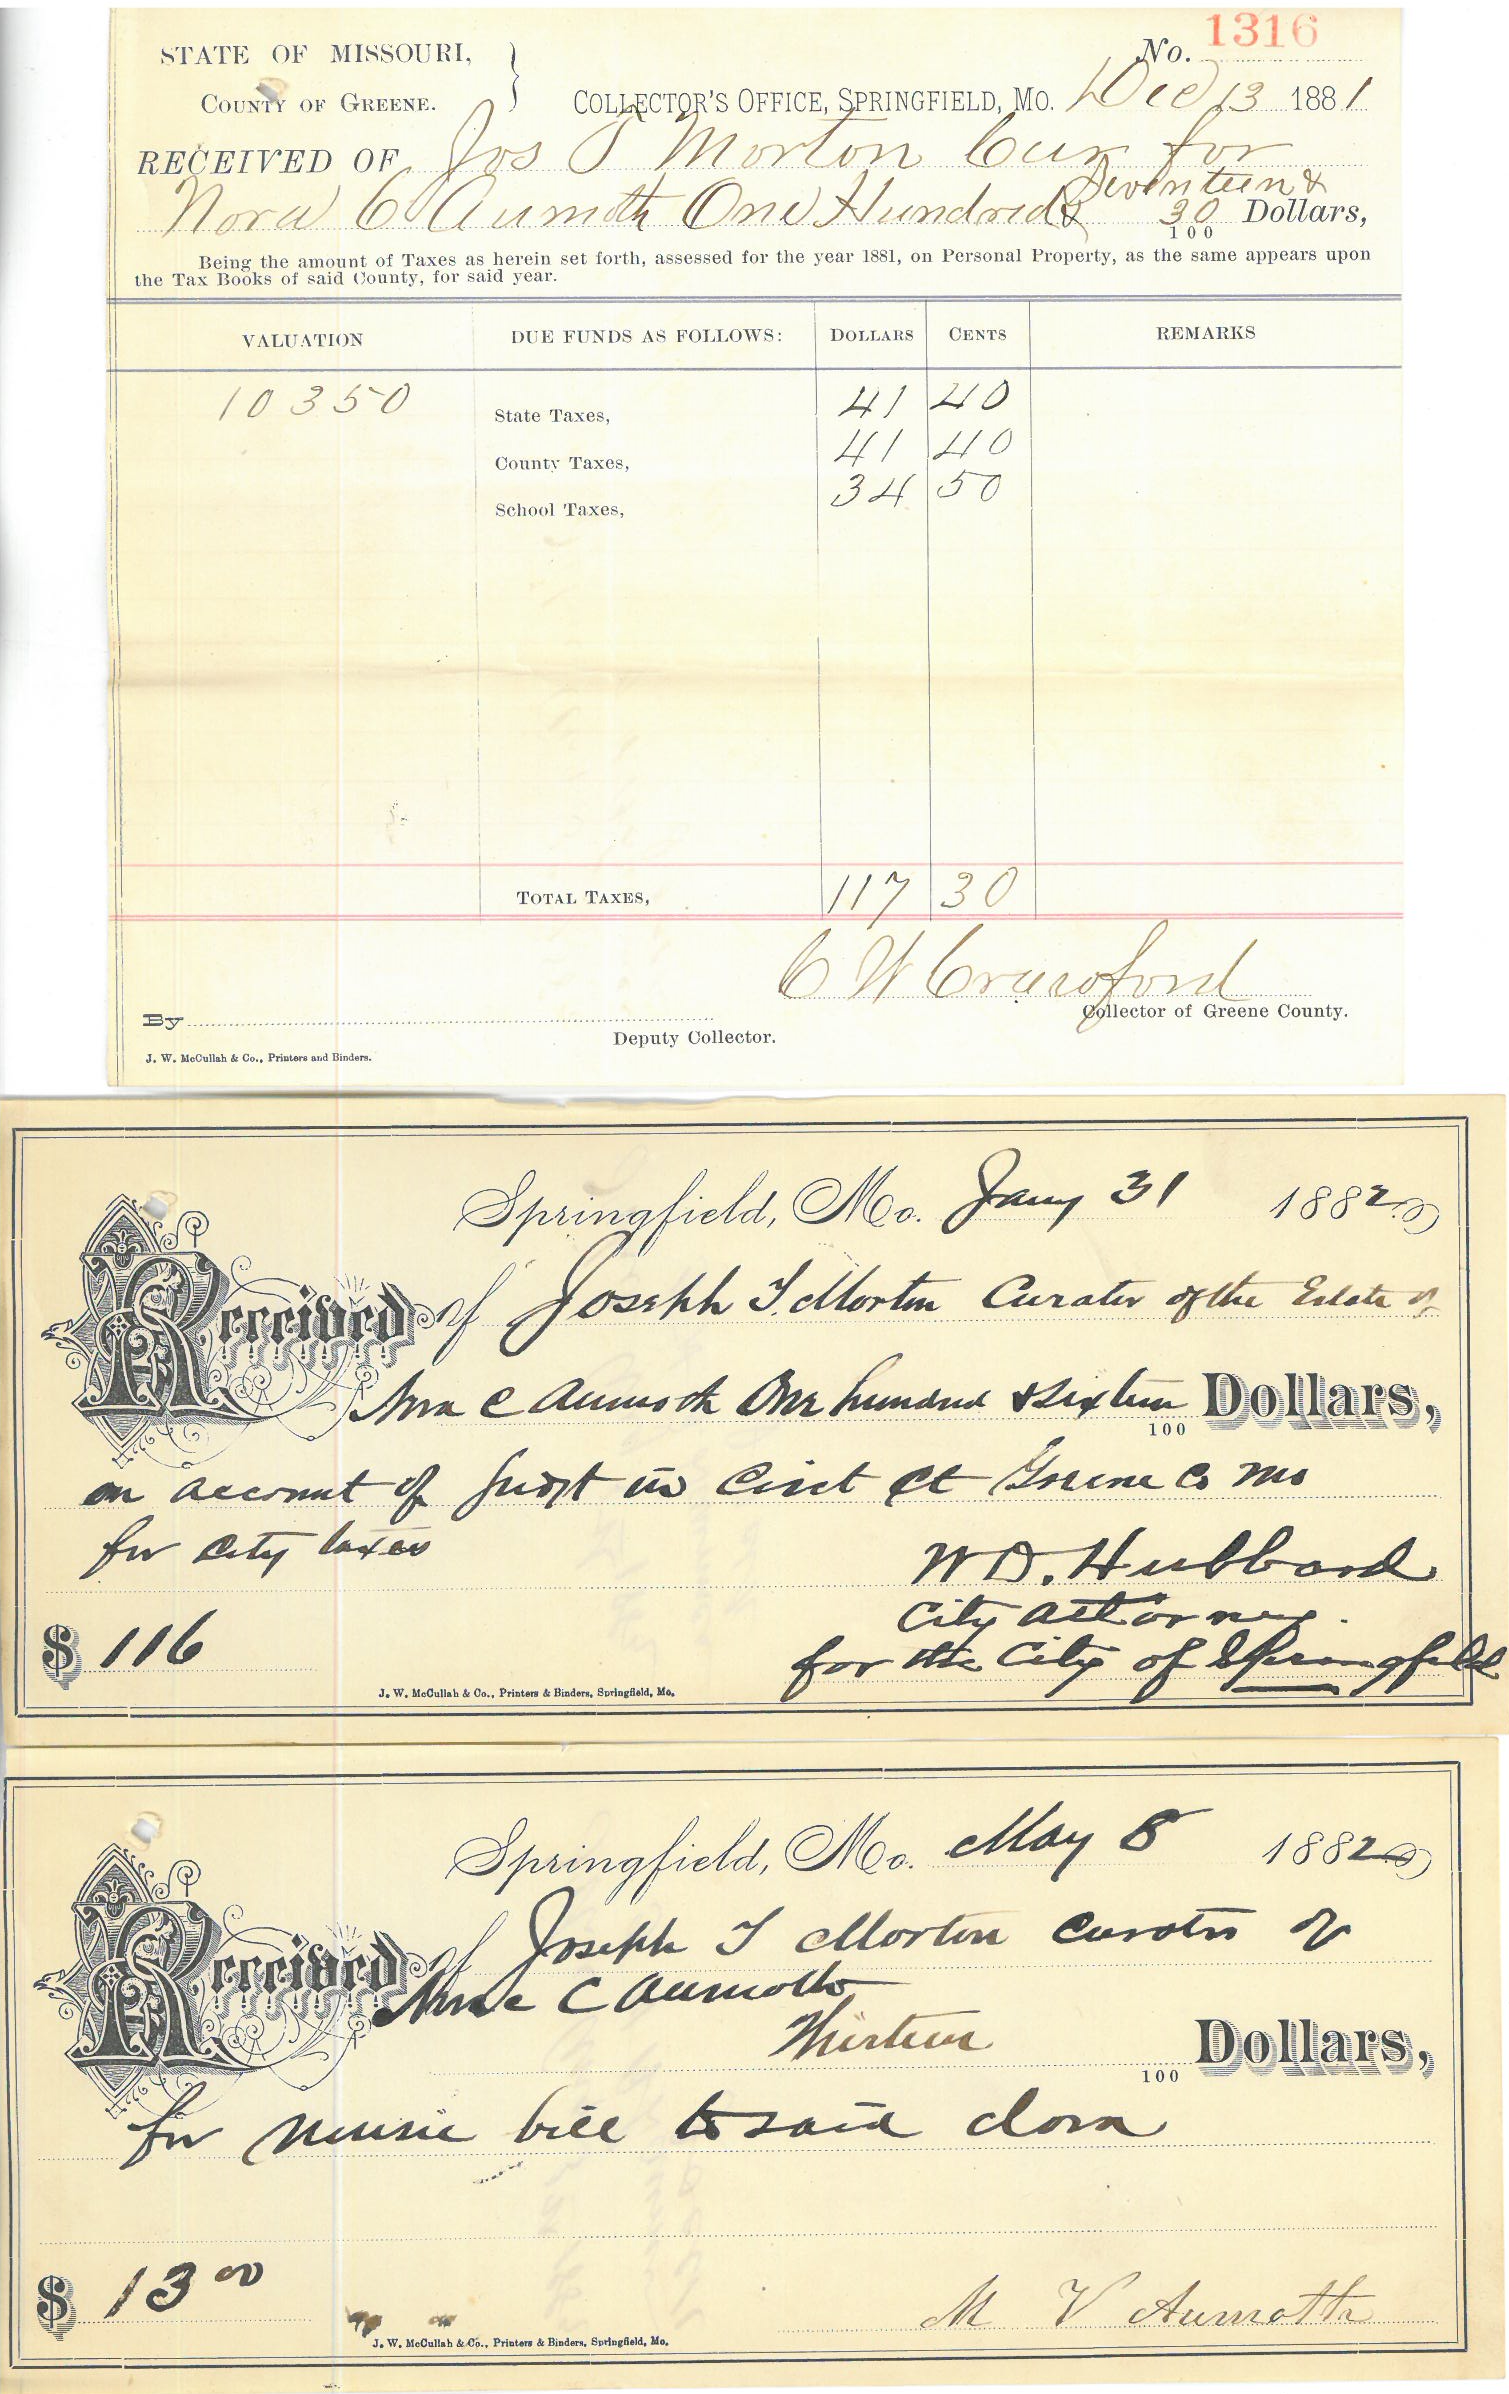 STATE OF MISSOURI,
COUNTY OF GREENE.
No. 1316
COLLECTOR'S OFFICE, SPRINGFIELD, MO. Dec 13 1881
RECEIVED OF Jos T Morton Cur for
Nora C Aumoth One Hundred & Seventeen & 30/100 Dollars,
Being the amount of Taxes as herein set forth, assessed for the year 1881, on Personal Property, as the same appears upon
the Tax Books of said County, for said year.
VALUATION DUE FUNDS AS FOLLOWS: DOLLARS CENTS REMARKS
10350 State Taxes, 41 40
County Taxes, 41 40
School Taxes, 34 50
TOTAL TAXES, 117 30
C W Crawford
Collector of Greene County.
By
Deputy Collector.
J. W. McCullah & Co., Printers and Binders.
Springfield, Mo. Jany 31 1882
Received of Joseph T. Morton Curator of the Estate of
Nora C Aumoth One hundred & sixteen /100 Dollars,
on account of Judgt in Circt Ct Greene Co Mo
for City taxes
W D. Hubbard
City Attorney.
for the City of Springfield
$ 116
J. W. McCullah & Co., Printers & Binders, Springfield, Mo.
Springfield, Mo. May 8 1882
Received of Joseph T Morton Curator of
Nora C Aumoth
Thirteen /100 Dollars,
for music bill to said Nora
$ 13 00
M V Aumoth
J. W. McCullah & Co., Printers & Binders, Springfield, Mo.